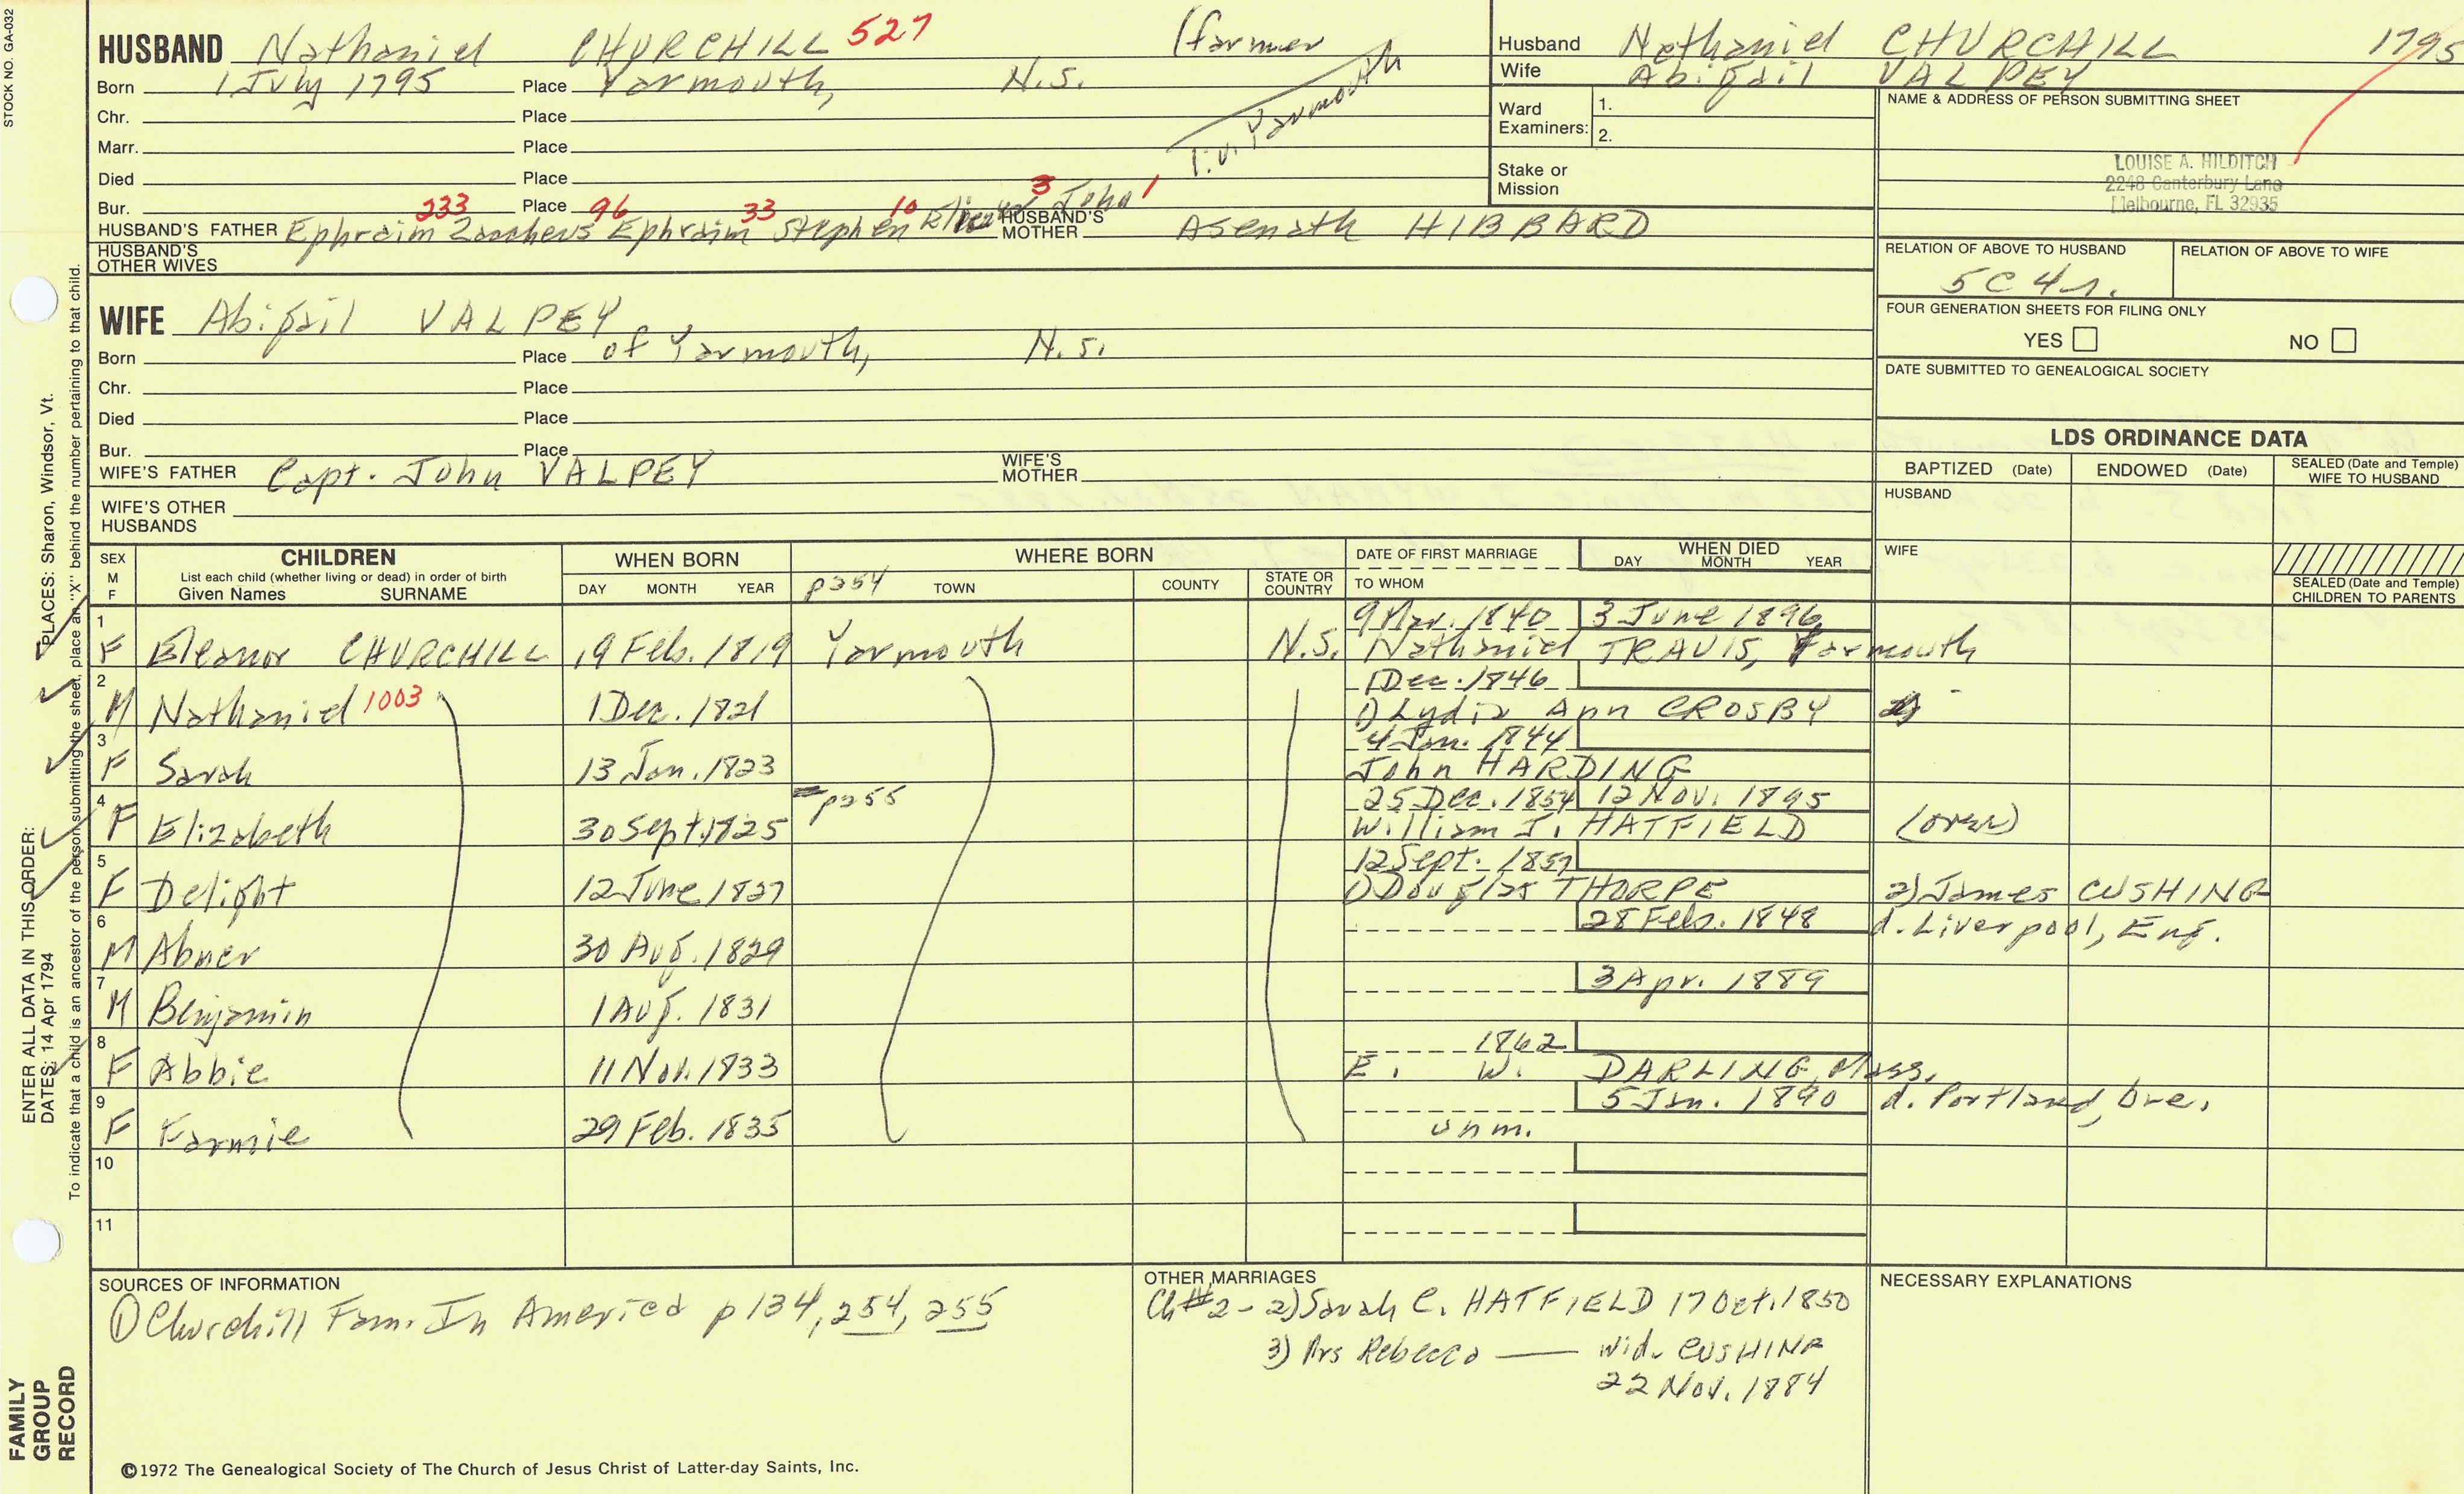 STOCK NO. GA-032
HUSBAND Nathaniel CHURCHILL 527 (farmer
Born 1 July 1795 Place Yarmouth, N.S.
Chr. Place
Marr. Place
Died Place
Bur. Place
l.v. Yarmouth
233 96 33 10 3 1
HUSBAND'S FATHER Ephraim Zaccheus Ephraim Stephen John HUSBAND'S MOTHER Asenath HIBBARD
HUSBAND'S OTHER WIVES
WIFE Abigail VALPEY
Born Place of Yarmouth, N.S.
Chr. Place
Died Place
Bur. Place
WIFE'S FATHER Capt. John VALPEY WIFE'S MOTHER
WIFE'S OTHER HUSBANDS
Husband Nathaniel CHURCHILL 1795
Wife Abigail VALPEY
Ward Examiners: 1.
2.
Stake or Mission
NAME & ADDRESS OF PERSON SUBMITTING SHEET
LOUISE A. HILDITCH
2248 Canterbury Lane
Melbourne, FL 32935
RELATION OF ABOVE TO HUSBAND RELATION OF ABOVE TO WIFE
5C4r.
FOUR GENERATION SHEETS FOR FILING ONLY
YES NO
DATE SUBMITTED TO GENEALOGICAL SOCIETY
LDS ORDINANCE DATA
BAPTIZED (Date) ENDOWED (Date) SEALED (Date and Temple) WIFE TO HUSBAND
HUSBAND
WIFE
SEALED (Date and Temple) CHILDREN TO PARENTS
SEX M F CHILDREN WHEN BORN WHERE BORN DATE OF FIRST MARRIAGE WHEN DIED
List each child (whether living or dead) in order of birth
Given Names SURNAME DAY MONTH YEAR p254 TOWN COUNTY STATE OR COUNTRY TO WHOM DAY MONTH YEAR
9 Mar. 1840 3 June 1896
1 F Eleanor CHURCHILL 19 Feb. 1819 Yarmouth N.S. Nathaniel TRAVIS, Yarmouth
1 Dec. 1846
2 M Nathaniel 1003 1 Dec. 1821 1) Lydia Ann CROSBY
4 Jan. 1844
3 F Sarah 13 Jan. 1823 John HARDING
p255 25 Dec. 1854 12 Nov. 1895
4 F Elizabeth 30 Sept. 1825 William J. HATFIELD (over)
12 Sept. 1857
5 F Delight 12 June 1827 1) Douglas THORPE 2) James CUSHING
28 Feb. 1848 d. Liverpool, Eng.
6 M Abner 30 Aug. 1829
3 Apr. 1889
7 M Benjamin 1 Aug. 1831
1862
8 F Abbie 11 Nov. 1833 E. W. DARLING, Mass.
5 Jan. 1890 d. Portland, Ore.
9 F Fannie 29 Feb. 1835 unm.
10
11
SOURCES OF INFORMATION
① Churchill Fam. In America p134, 254, 255
OTHER MARRIAGES
Ch #2 - 2) Sarah C. HATFIELD 17 Oct. 1850
3) Mrs Rebecca — wid. CUSHING
22 Nov. 1884
NECESSARY EXPLANATIONS
©1972 The Genealogical Society of The Church of Jesus Christ of Latter-day Saints, Inc.
ENTER ALL DATA IN THIS ORDER: PLACES: Sharon, Windsor, Vt.
DATES: 14 Apr 1794
To indicate that a child is an ancestor of the person submitting the sheet, place an "X" behind the number pertaining to that child.
FAMILY GROUP RECORD